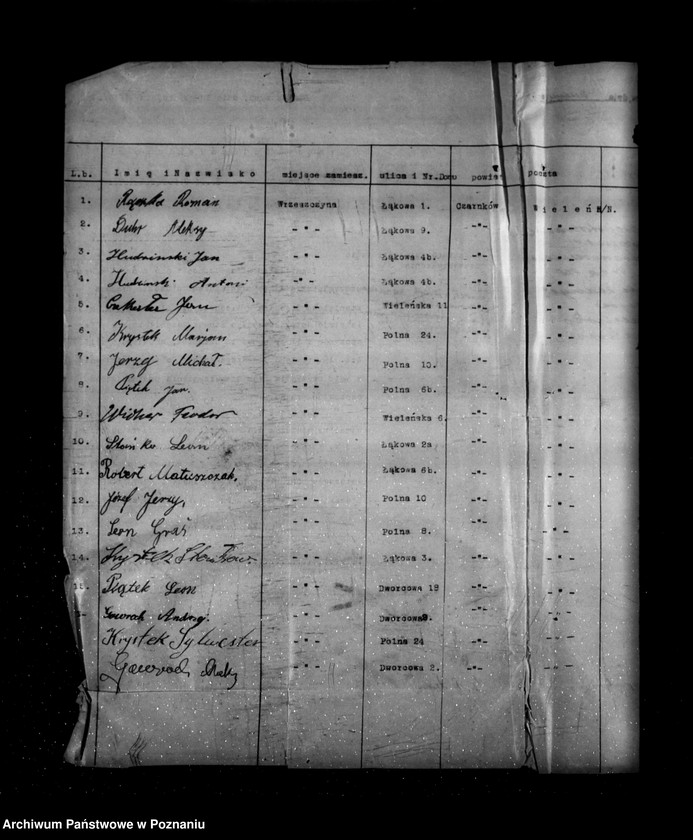 L.b. Imię i Nazwisko miejsce zamiesz. ulica i Nr.Domu powiat poczta
1. Roman Wrzeszczyna Łąkowa 1. Czarnków Wieleń N/N.
2. Duhr -"- Łąkowa 9. -"- -"-
3. Hudziński Jan -"- Łąkowa 4b. -"- -"-
4. Antoni -"- Łąkowa 4b. -"- -"-
5. Jan -"- Wieleńska 11 -"- -"-
6. Krystek Marjan -"- Polna 24. -"- -"-
7. Jerzy Michał. -"- Polna 10. -"- -"-
8. Piątek Jan. -"- Polna 6b. -"- -"-
9. Teodor -"- Wieleńska 6. -"- -"-
10. Leon -"- Łąkowa 2a -"- -"-
11. Robert Matuszczak, -"- Łąkowa 6b. -"- -"-
12. Józef Jerzy, -"- Polna 10 -"- -"-
13. Leon Graś -"- Polna 8. -"- -"-
14. Krystek -"- Łąkowa 3. -"- -"-
15. Piątek Leon -"- Dworcowa 18 -"- -"-
Andrzej -"- Dworcowa -"- -"-
Krystek Sylwester -"- Polna 24 -"- -"-
-"- Dworcowa 2. -"- -"-
Archiwum Państwowe w Poznaniu